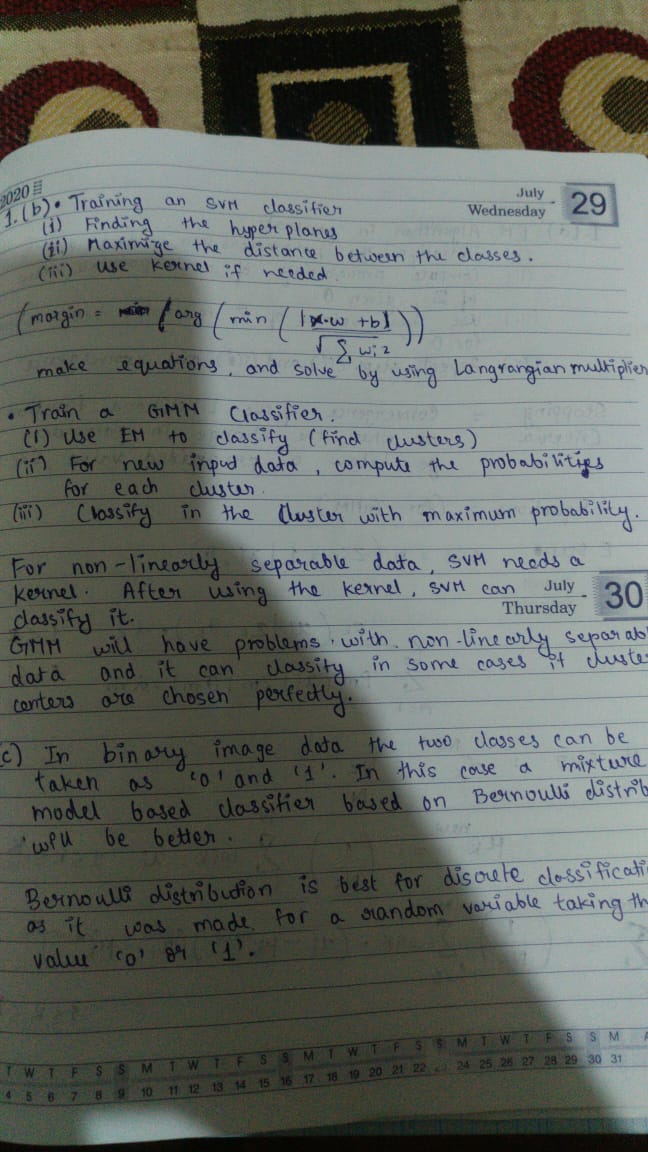 2020
July
Wednesday 29
1. (b) • Training an SVM classifier
(i) Finding the hyperplanes
(ii) Maximize the distance between the classes.
(iii) use kernel if needed.
(margin = (arg (min (|x.w +b|
√Σ wi2))
make equations, and solve by using Langrangian multiplier
• Train a GMM Classifier.
(i) Use EM to classify (find clusters)
(ii) For new input data, compute the probabilities
for each cluster.
(iii) Classify in the cluster with maximum probability.
For non-linearly separable data, SVM needs a
kernel. After using the kernel, SVM can
July
Thursday 30
classify it.
GMM will have problems with non-linearly separabl
data and it can classify in some cases if cluste
centers are chosen perfectly.
c) In binary image data the two classes can be
taken as '0' and '1'. In this case a mixture
model based classifier based on Bernoulli distrib
will be better.
Bernoulli distribution is best for discrete classificati
as it was made for a random variable taking th
value '0' or '1'.
T W T F S S M T W T F S S M T W T F S S M T W T F S S M
4 5 6 7 8 9 10 11 12 13 14 15 16 17 18 19 20 21 22 24 25 26 27 28 29 30 31